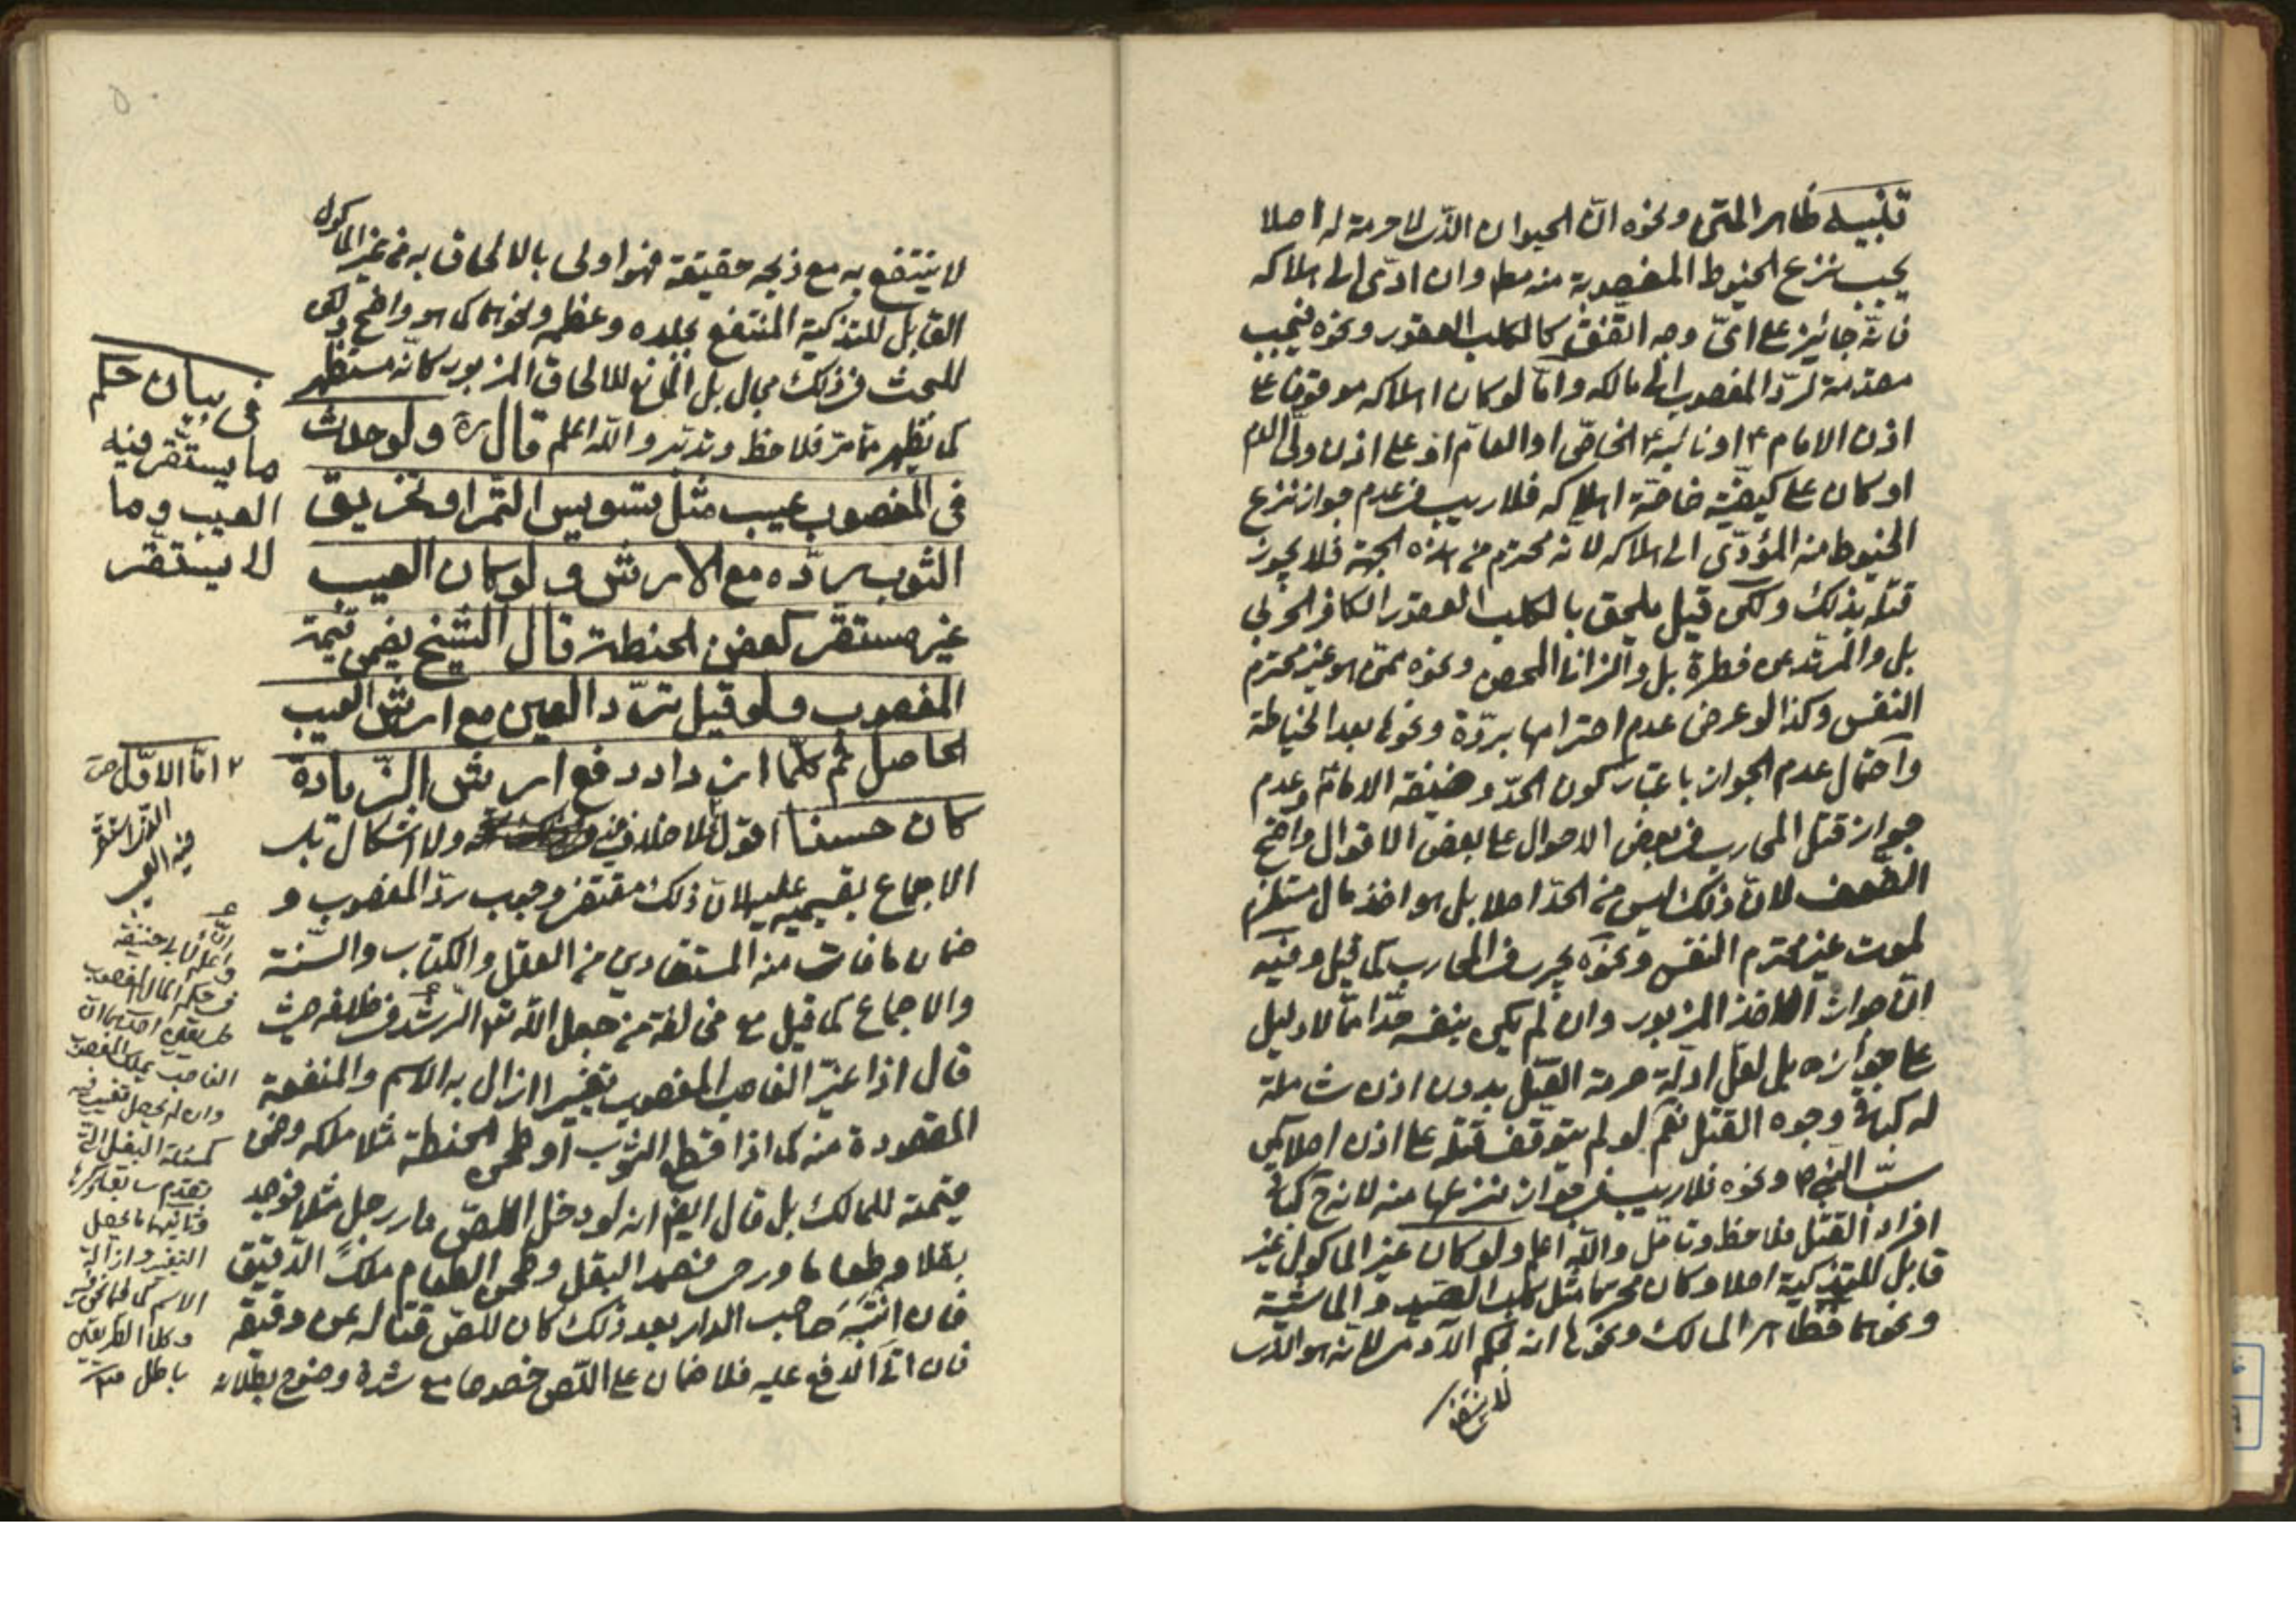 تنبيه ظاهر المتن ونحوه انّ الحيوان الذى لا حرمة له اصلا
يجب نزع الخيوط المغصوبة منه مط وان ادّى الى اهلاكه
فانّه جائز على اىّ وجه اتّفق كالكلب العقور ونحوه فيجب
مقدمة لردّ المغصوب الى مالكه وامّا لو كان اهلاكه موقوفا على
اذن الامام ع او نائبه ع الخاصّ او العامّ او على اذن ولى الدم
او كان على كيفيّة خاصّة اهلاكه فلا ريب فى عدم جواز نزع
الخيوط منه المؤدّى الى اهلاكه لانه محترم من هذه الجهة فلا يجوز
قتله بذلك ولكن قيل يلحق بالكلب العقور الكافر الحربى
بل والمرتد عن فطرة بل والزانى المحصن ونحوه ممّن هو غير محترم
النفس وكذا لو عرض عدم احترامها بردّة ونحوها بعد الخياطة
واحتمال عدم الجواز باعتبار كون الحدّ وظيفة الامام وعدم
جواز قتل المحارب فى بعض الاحوال على بعض الاقوال واضح
الضعف لانّ ذلك ليس من الحدّ اصلا بل هو اخذ مال مستلزم
لموت غير محترم النفس ونحوه يجرى فى المحارب كما قيل وفيه
انّ جواز الاخذ المزبور وان لم يكن بنفسه حدّا ممّا لا دليل
على جوازه بل لعلّ ادلّة حرمة القتل بدون اذن شاملة
له كباقى وجوه القتل نعم لو لم يتوقف قتله على اذن اصلا كمن
سبّ النبى ص ونحوه فلا ريب فى جواز نزعها منه لانه ح كباقى
افراد القتل فلاحظ وتامّل والله اعلم ولو كان غير الماكول غير
قابل للتذكية اصلا وكان محرما مثل كلب الصيد والماشية
ونحوهما فظاهر المسالك ونحوها انه بحكم الآدمى لانه هو الذى
لا ينتفع
لا ينتفع به مع ذبحه حقيقة فهو اولى بالالحاق به من غير الماكول
القابل للتذكية المنتفع بجلده وعظمه ونحوهما كما هو واضح ولكن
للبحث فى ذلك مجال بل المانع للالحاق المزبور كانّه مستظهر
كما يظهر ممّا مرّ فلاحظ وتدبّر والله اعلم قال ره ولو حدث
فى المغصوب عيب مثل تسويس التمر او تخريق
الثوب ردّه مع الارش ولو كان العيب
غير مستقر كعفن الحنطة قال الشيخ يضمن قيمة
المغصوب ولو قيل بردّ العين مع ارش العيب
الحاصل ثم كلّما ازداد دفع ارش الزيادة
كان حسنا اقول لا خلاف فيه ولا اشكال بل
الاجماع بقسميه عليه لانّ ذلك مقتضى وجوب ردّ المغصوب و
ضمان ما فات منه المستفادين من العقل والكتاب والسّنة
والاجماع كما قيل مع مخالفة من جعل الله تعا الرشد فى خلافه حيث
قال اذا غيّر الغاصب المغصوب تغييرا ازال به الاسم والمنفعة
المقصودة منه كما اذا قطع الثوب او طحن الحنطة مثلا ملكه وضمن
قيمته للمالك بل قال ايضا انه لو دخل اللصّ دار رجل مثلا فوجد
بغلا وطعاما ورحى فصمد البغل وطحن الطعام ملك الدقيق
فان انتبه صاحب الدار بعد ذلك كان للصّ قتاله عن دقيقه
فان اتى الدفع عليه فلا ضمان على اللّص خصوصا مع شدة وضوح بطلانه
فى بيان حكم
ما يستقر فيه
العيب وما
لا يستقر
٢ امّا الاوّل
الذى استقر
فيه العيب
واعلم انّ لابى حنيفة
فى حكم المال المغصوب
طريقين احدهما انّ
الغاصب يملك المغصوب
وان لم يحصل تغيير فيه
كمسئلة البغل التى
تقدم سابقا ذكرها
وثانيهما ما يحصل
التغير وازالة
الاسم كما فيما نحن فيه
وكلا الطريقين
باطل منه